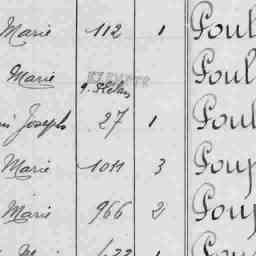 Marie 112 1 Poul
Marie Poul
Joseph 27 1 Poul
Marie 1011 3 Poup
Marie 966 2 Poup